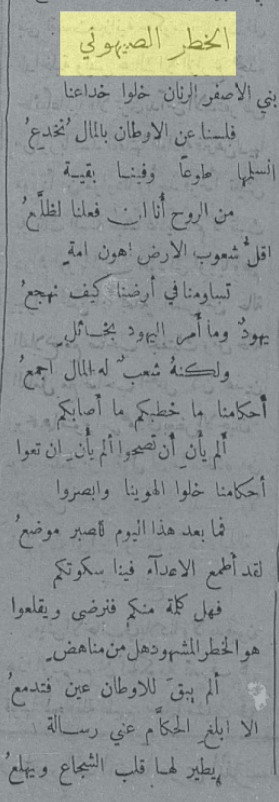 الخطر الصهيوني
بني الاصفر الرنان خلوا خداعنا
فلسنا عن الاوطان بالمال نُخدعُ
انسلمها طوعاً وفينا بقية
من الروح أنا إن فعلنا لظلَّعُ
اقلُّ شعوب الارض اهون امةٍ
تساومنا في أرضنا كيف نهجعُ
يهودٌ وما أمر اليهود بخائلٍ
ولكنهُ شعبٌ له المال اجمعُ
أحكامنا ما خطبكم ما أصابكم
ألم يأنِ أن تصحوا ألم يأنِ ان تعوا
أحكامنا خلوا الهوينا وابصروا
فما بعد هذا اليوم للصبر موضعُ
لقد أطمع الاعدآء فينا سكوتكم
فهل كلمة منكم فنرضى ويقلعوا
هو الخطر المشهود هل من مناهض
ألم يبقَ للاوطان عين فتدمعُ
الا ابلغ الحكّام عني رسالة
يطير لها قلب الشجاع ويهلعُ